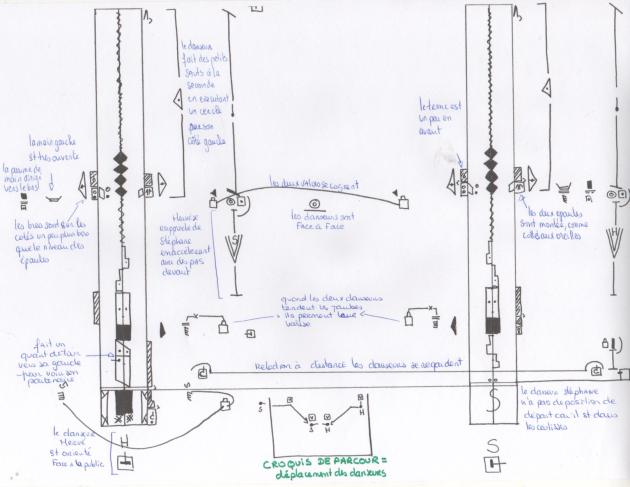 le danseur
fait des petits
sauts à la
seconde
en exécutant
un cercle
par son
côté gauche
le torse est
un pas en
avant
la main gauche
est très ouverte
la paume de
main dirigé
vers le bas
les deux valises se cognent
les bras sont sur les
cotés un peu plus bas
que le niveau des
épaules
Hervé
se rapproche de
Stéphane
en accélérant
avec des pas
devant
les danseurs sont
Face à Face
les deux épaules
sont montée, comme
collés aux oreilles
S
quand les deux danseurs
tendent les jambes
ils prennent leur
valise
fait un
quart de tour
vers sa gauche
pour voir son
partenaire
Relation à distance les danseurs se regardent
S
S
H
H
S
le danseur stéphane
n'a pas de position de
départ car il est dans
les coulisses
le danseur
Hervé
est orienté
Face à la public
H
S
CROQUIS DE PARCOUR =
déplacement des danseurs